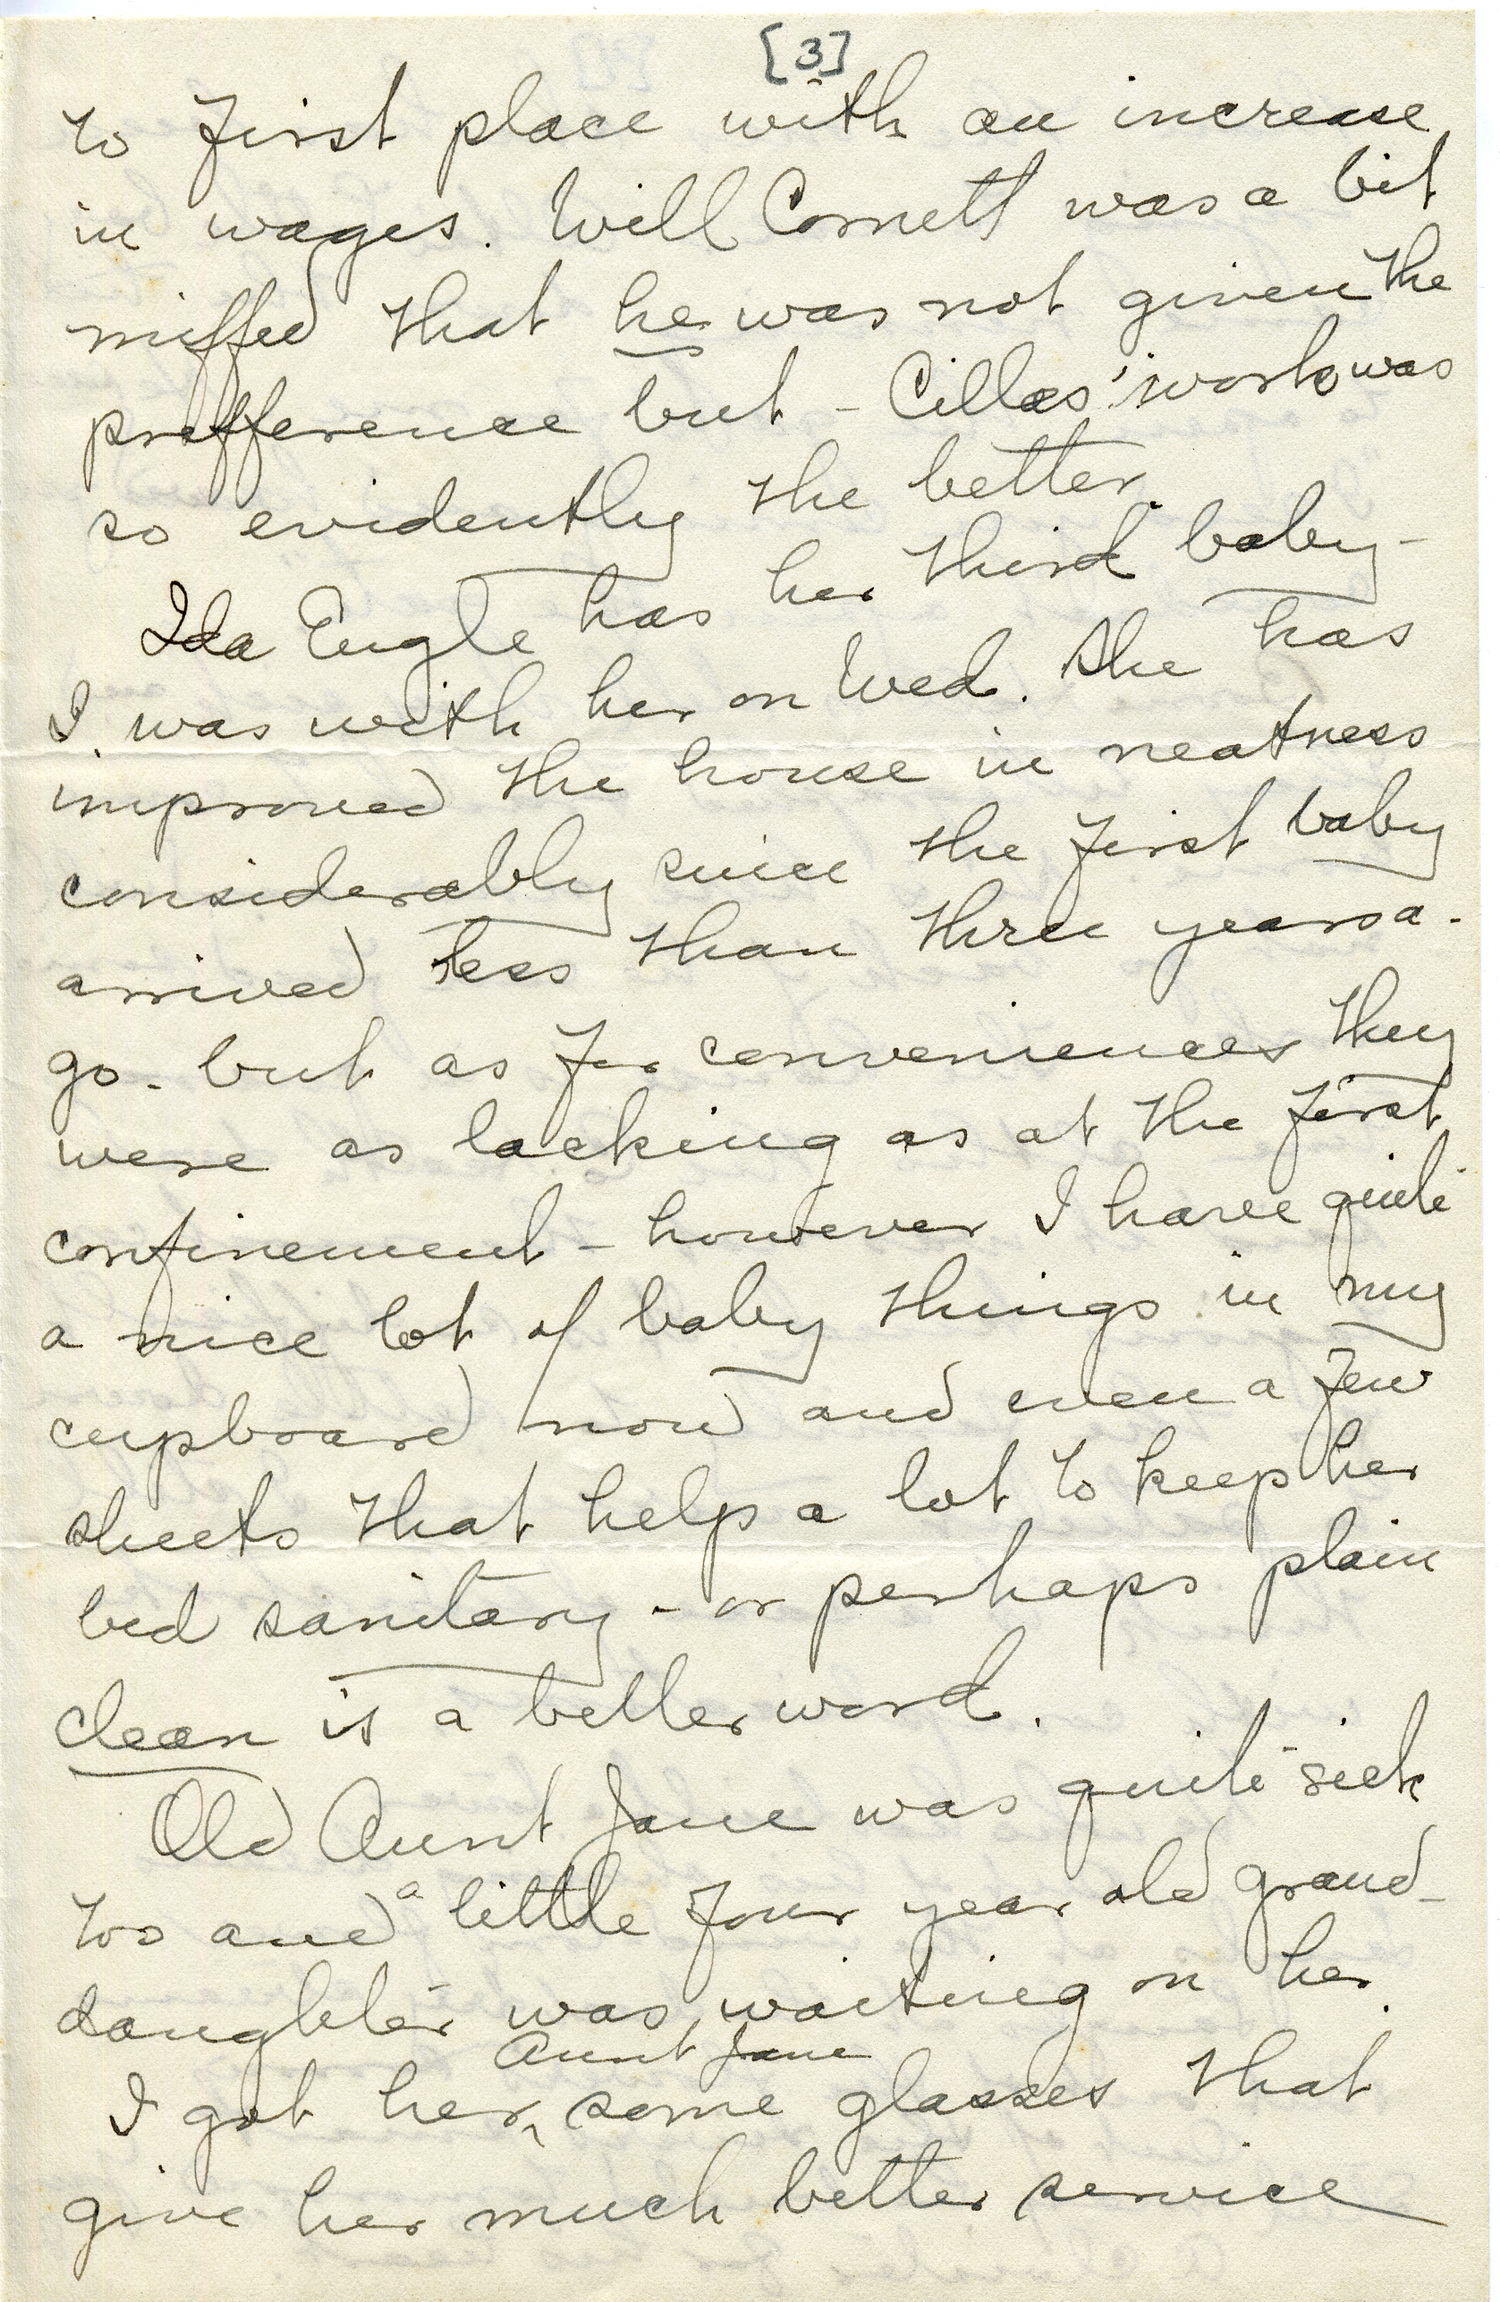 [3]
to first place with an increase
in wages. Will Cornett was a bit
miffed that he was not given the
prefference but - Cillas' work was
so evidently the better.
Ida Engle has her third baby -
I was with her on Wed. She has
improved the house in neatness
considerably since the first baby
arrived less than three years a-
go - but as for conveniences they
were as lacking as at the first
confinement - however I have quite
a nice lot of baby things in my
cupboard now and even a few
sheets that help a lot to keep her
bed sanitary - or perhaps plain
clean is a better word.
Old Aunt Jane was quite sick
too and a little four year old grand-
daughter was waiting on her.
Aunt Jane
I got her, some glasses that
give her much better service